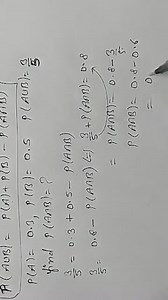 P(A∪B) = P(A) + P(B) - P(A∩B)
P(A) = 0.3, P(B) = 0.5 P(A∪B) = 3/5
find P(A∩B) = ?
3/5 = 0.3 + 0.5 - P(A∩B)
3/5 = 0.8 - P(A∩B) ⇒ 3/5 + P(A∩B) = 0.8
= P(A∩B) = 0.8 - 3/5
P(A∩B) = 0.8 - 0.6
= 0